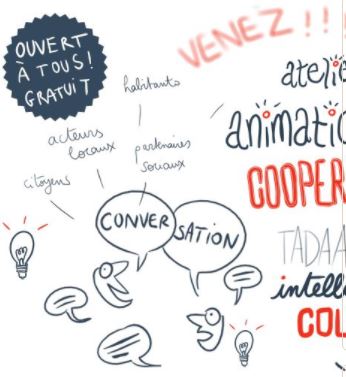 OUVERT
À TOUS!
GRATUIT
VENEZ!!!
habitants
acteurs
locaux
partenaires
sociaux
citoyens
CONVERSATION
atelie
animatio
COOPER
TADAA
intelle
COL